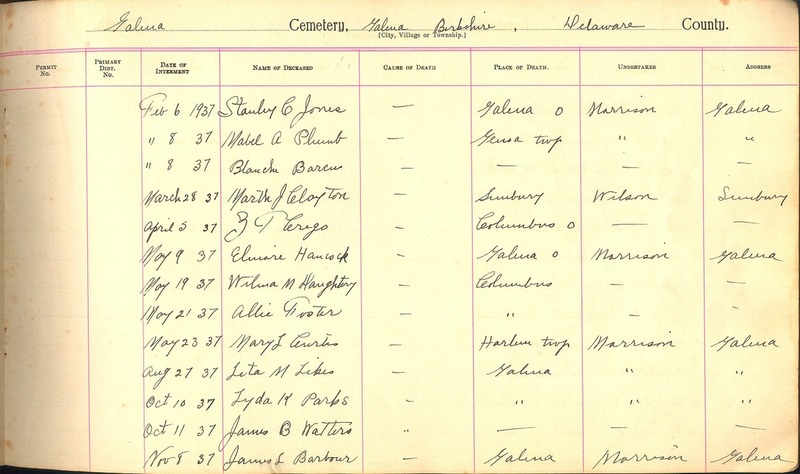 Galena Cemetery, Galena Berkshire, Delaware County.
[City, Village or Township.]
Permit No. Primary Dist. No. Date of Interment Name of Deceased Cause of Death Place of Death. Undertaker Address
Feb 6 1937 Stanley C Jones — Galena O Morrison Galena
" 8 37 Mabel A Plumb — Genoa twp " "
" 8 37 Blanche Barcus — — — —
March 28 37 Marth J Clayton — Sunbury Wilson Sunbury
April 5 37 Z T Crego — Columbus O — —
May 9 37 Elmore Hancock — Galena O Morrison Galena
May 19 37 Wilma M Haughtery — Columbus — —
May 21 37 Allie Foster — " — -
May 23 37 Mary L Curtis — Harlem twp Morrison Galena
Aug 27 37 Lita M Likes — Galena " "
Oct 10 37 Lyda K Parks - " " "
Oct 11 37 James B Watters " — — —
Nov 8 37 James L Barbour — Galena Morrison Galena